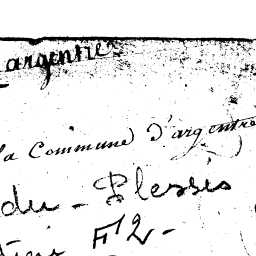 argentré
la Commune d'argentré
du - Plessis
F 2 -